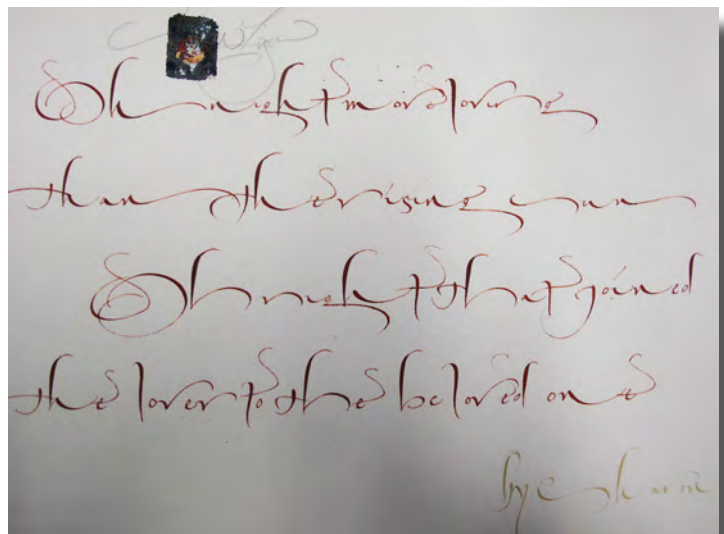 Oh night more loving
than the rising sun
Oh night that joined
the lover to the beloved one
by